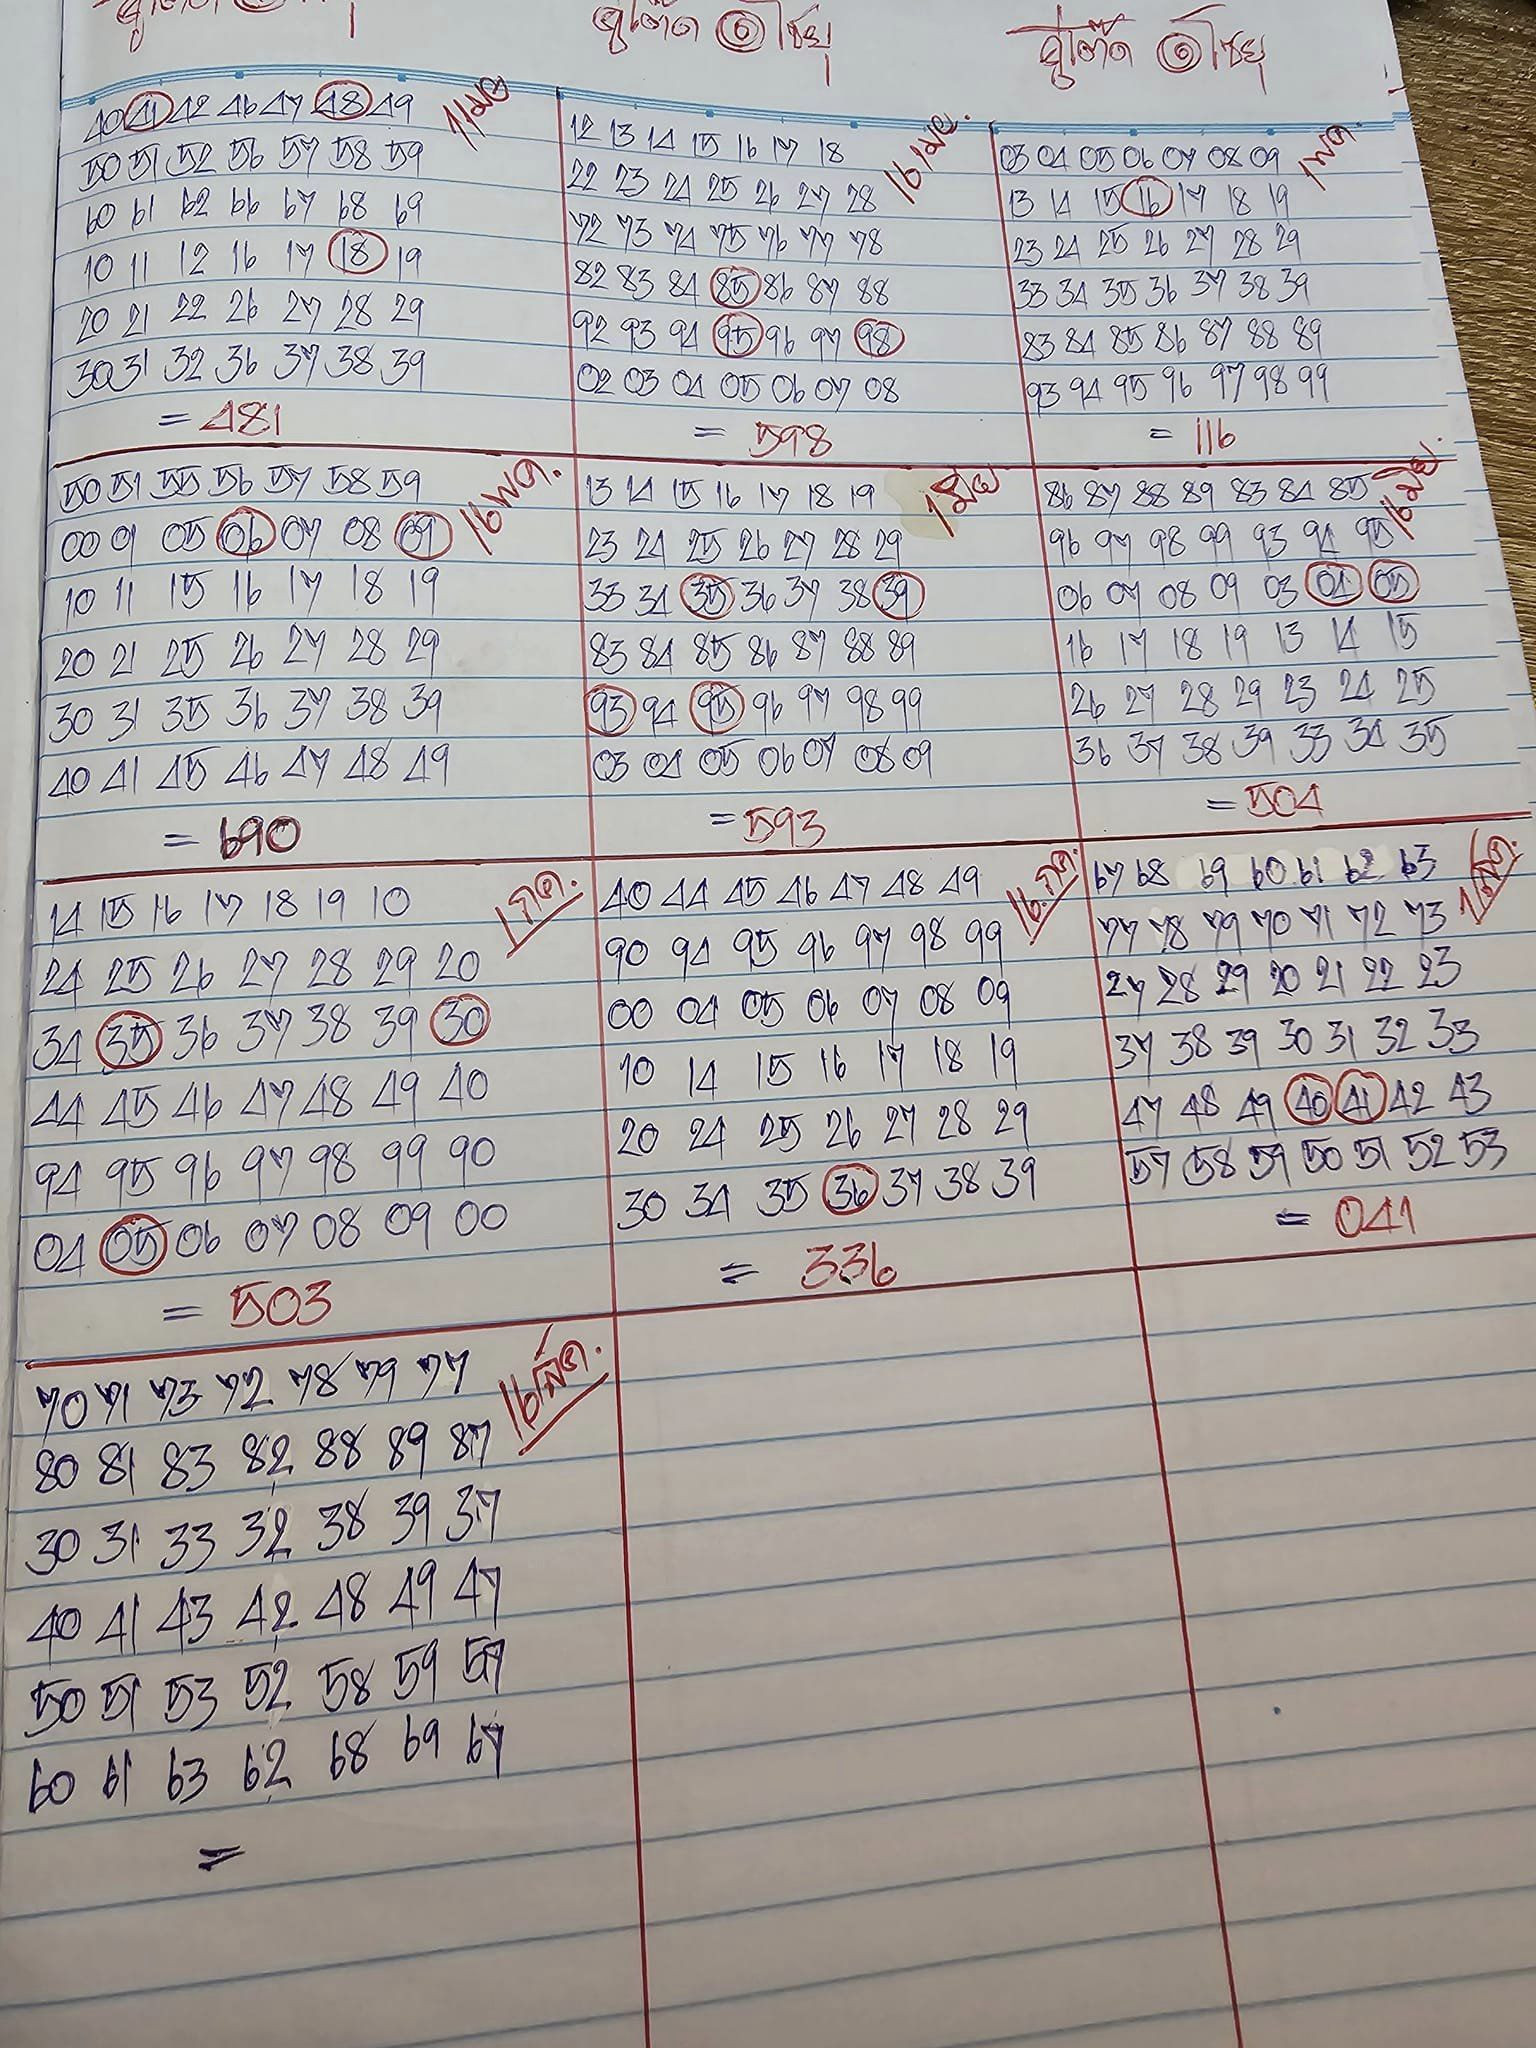 40 41 42 46 47 48 49
50 51 52 56 57 58 59
60 61 62 66 67 68 69
10 11 12 16 17 18 19
20 21 22 26 27 28 29
30 31 32 36 37 38 39
= 481
16 เมย.
12 13 14 15 16 17 18
22 23 24 25 26 27 28
72 73 74 75 76 77 78
82 83 84 85 86 87 88
92 93 94 95 96 97 98
02 03 04 05 06 07 08
= 598
1 พค
03 04 05 06 07 08 09
13 14 15 16 17 18 19
23 24 25 26 27 28 29
33 34 35 36 37 38 39
83 84 85 86 87 88 89
93 94 95 96 97 98 99
= 116
16 พค.
50 51 55 56 57 58 59
00 01 05 06 07 08 09
10 11 15 16 17 18 19
20 21 25 26 27 28 29
30 31 35 36 37 38 39
40 41 45 46 47 48 49
= 690
1 มิย
13 14 15 16 17 18 19
23 24 25 26 27 28 29
33 34 35 36 37 38 39
83 84 85 86 87 88 89
93 94 95 96 97 98 99
03 04 05 06 07 08 09
= 593
16 มิย.
86 87 88 89 83 84 85
96 97 98 99 93 94 95
06 07 08 09 03 04 05
16 17 18 19 13 14 15
26 27 28 29 23 24 25
36 37 38 39 33 34 35
= 504
1 กค.
14 15 16 17 18 19 10
24 25 26 27 28 29 20
34 35 36 37 38 39 30
44 45 46 47 48 49 40
94 95 96 97 98 99 90
04 05 06 07 08 09 00
= 503
16 กค.
40 44 45 46 47 48 49
90 94 95 96 97 98 99
00 04 05 06 07 08 09
10 14 15 16 17 18 19
20 24 25 26 27 28 29
30 34 35 36 37 38 39
= 336
1 สค.
67 68 69 60 61 62 63
77 78 79 70 71 72 73
27 28 29 20 21 22 23
37 38 39 30 31 32 33
47 48 49 40 41 42 43
57 58 59 50 51 52 53
= 041
16 สค.
70 71 73 72 78 79 77
80 81 83 82 88 89 87
30 31 33 32 38 39 37
40 41 43 42 48 49 47
50 51 53 52 58 59 57
60 61 63 62 68 69 67
=